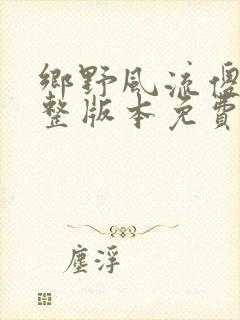 鄉野風流傻
整版本免費
塵浮